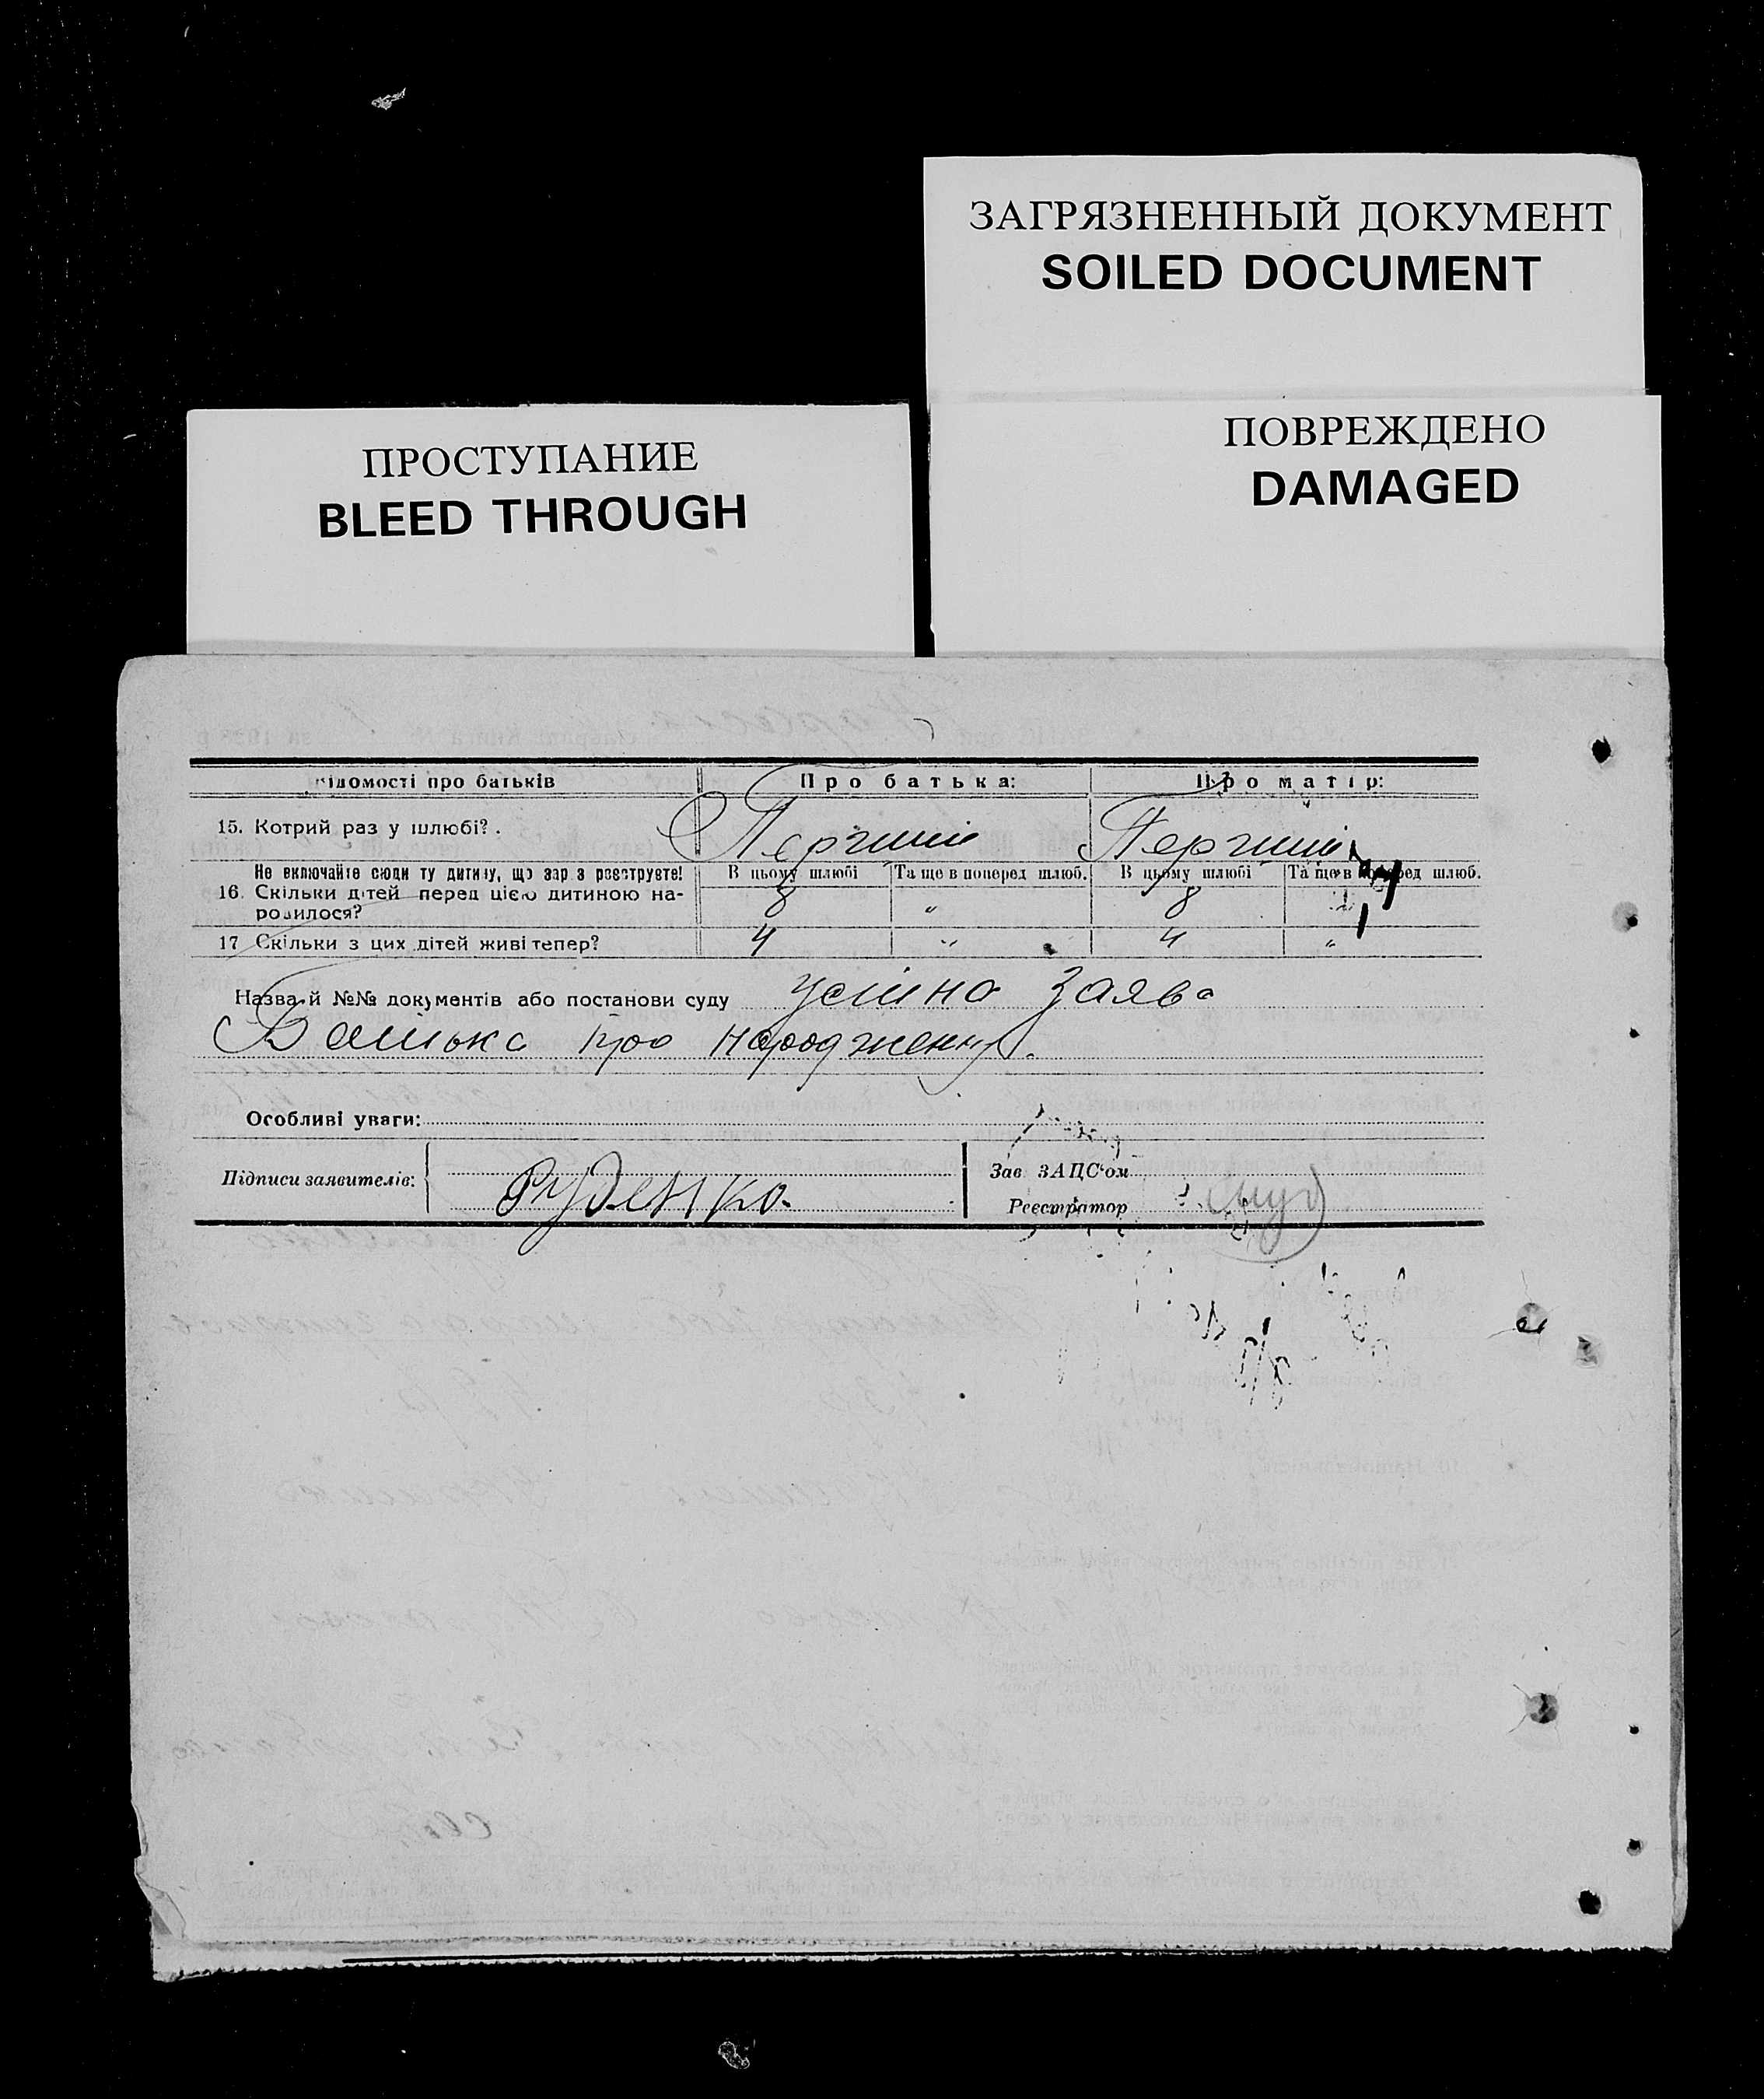 ЗАГРЯЗНЕННЫЙ ДОКУМЕНТ
SOILED DOCUMENT
ПОВРЕЖДЕНО
DAMAGED
ПРОСТУПАНИЕ
BLEED THROUGH
Відомості про батьків Про батька: Про матір:
15. Котрий раз у шлюбі? . Перший Перший
Не включайте сюди ту дитину, що зараз реєструєте! В цьому шлюбі Та ще в поперед шлюб. В цьому шлюбі Та ще в поперед шлюб.
16. Скільки дітей перед цією дитиною на-
родилося? 8 " 8
17 Скільки з цих дітей живі тепер? 4 " 4 "
Назва й №№ документів або постанови суду Устна заява
Батька про народження.
Особливі уваги:
Підписи заявителів: Руденко. Зав ЗАЦС'ом
Реєстратор